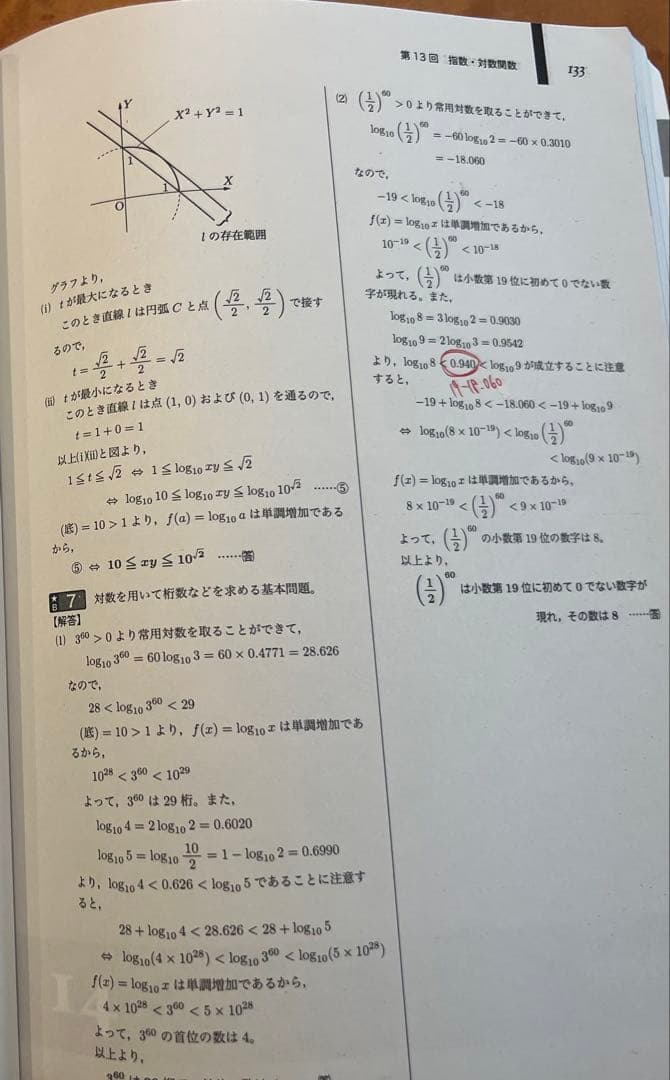 第13回 指数・対数関数
133
Y
X²+Y²=1
1
1
X
O
lの存在範囲
グラフより,
(i) tが最大になるとき
このとき直線lは円弧Cと点(√2/2, √2/2)で接す
るので,
t=√2/2+√2/2=√2
(ii) tが最小になるとき
このとき直線lは点(1, 0)および(0, 1)を通るので,
t=1+0=1
以上(i)(ii)と図より,
1≦t≦√2 ⇔ 1≦log₁₀xy≦√2
⇔ log₁₀10≦log₁₀xy≦log₁₀10^√2 ……⑤
(底)=10>1より, f(a)=log₁₀aは単調増加である
から,
⑤ ⇔ 10≦xy≦10^√2 ……答
★B 7 対数を用いて桁数などを求める基本問題。
【解答】
(1) 3⁶⁰>0より常用対数を取ることができて,
log₁₀3⁶⁰=60log₁₀3=60×0.4771=28.626
なので,
28<log₁₀3⁶⁰<29
(底)=10>1より, f(x)=log₁₀xは単調増加であ
るから,
10²⁸<3⁶⁰<10²⁹
よって, 3⁶⁰は29桁。また,
log₁₀4=2log₁₀2=0.6020
log₁₀5=log₁₀10/2=1−log₁₀2=0.6990
より, log₁₀4<0.626<log₁₀5であることに注意す
ると,
28+log₁₀4<28.626<28+log₁₀5
⇔ log₁₀(4×10²⁸)<log₁₀3⁶⁰<log₁₀(5×10²⁸)
f(x)=log₁₀xは単調増加であるから,
4×10²⁸<3⁶⁰<5×10²⁸
よって, 3⁶⁰の首位の数は4。
以上より,
3⁶⁰
(2) (1/2)⁶⁰>0より常用対数を取ることができて,
log₁₀(1/2)⁶⁰=−60log₁₀2=−60×0.3010
=−18.060
なので,
−19<log₁₀(1/2)⁶⁰<−18
f(x)=log₁₀xは単調増加であるから,
10⁻¹⁹<(1/2)⁶⁰<10⁻¹⁸
よって, (1/2)⁶⁰は小数第19位に初めて0でない数
字が現れる。また,
log₁₀8=3log₁₀2=0.9030
log₁₀9=2log₁₀3=0.9542
より, log₁₀8<0.940<log₁₀9が成立することに注意
すると,
19-18.060
−19+log₁₀8<−18.060<−19+log₁₀9
⇔ log₁₀(8×10⁻¹⁹)<log₁₀(1/2)⁶⁰
<log₁₀(9×10⁻¹⁹)
f(x)=log₁₀xは単調増加であるから,
8×10⁻¹⁹<(1/2)⁶⁰<9×10⁻¹⁹
よって, (1/2)⁶⁰の小数第19位の数字は8。
以上より,
(1/2)⁶⁰は小数第19位に初めて0でない数字が
現れ, その数は8 ……答